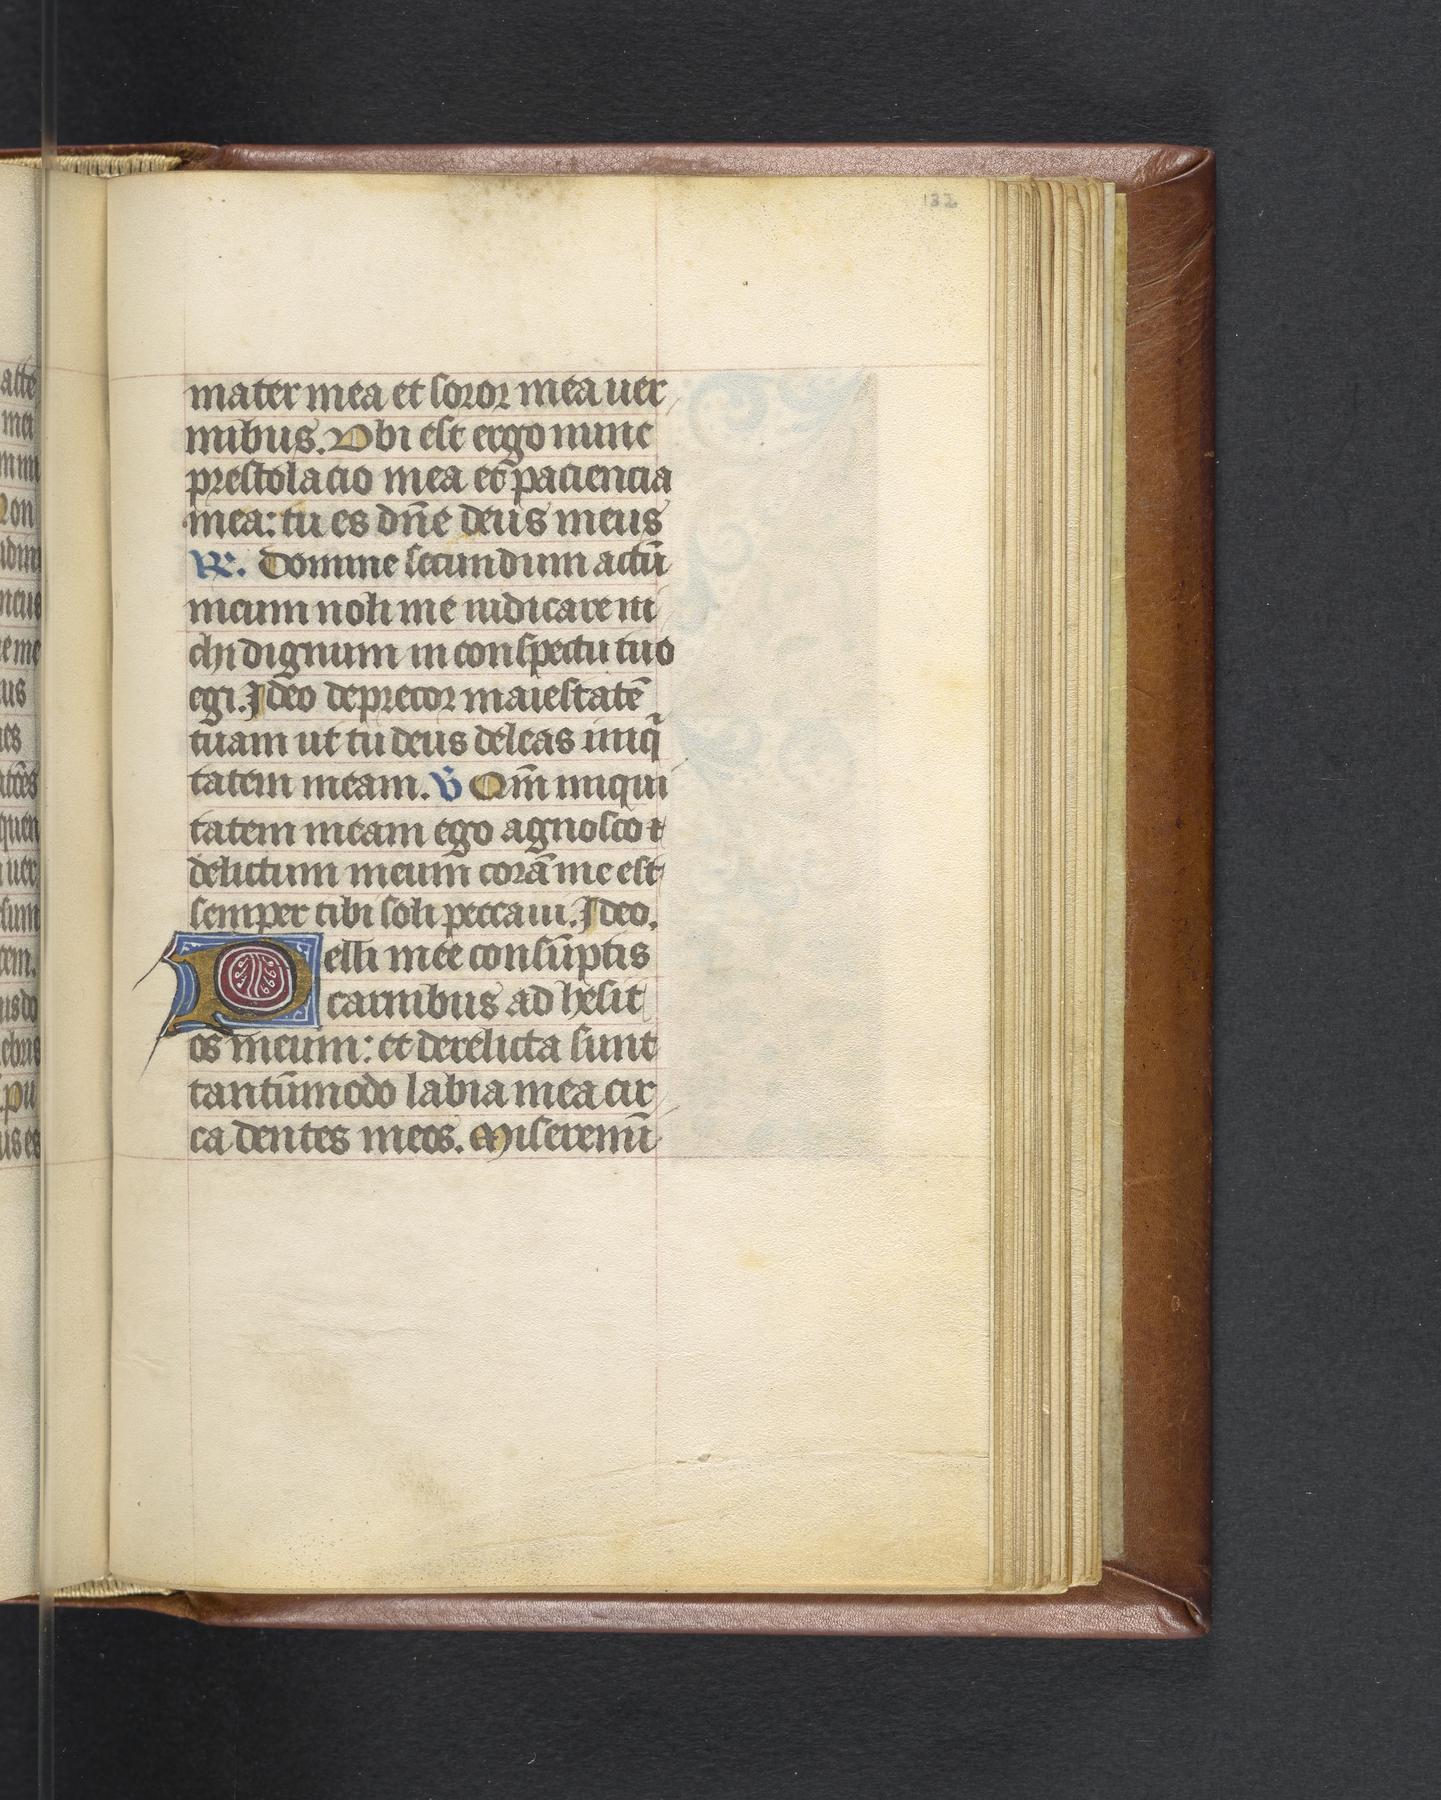 132
mater mea et soror mea uer
mibus. Vbi est ergo nunc
prestolacio mea et paciencia
mea: tu es dñe deus meus
R. Domine secundum actū
meum noli me iudicare ni
chi dignum in conspectu tuo
egi. Ideo deprecor maiestatē
tuam ut tu deus deleas iniq̄
tatem meam. V Om̄ iniqui
tatem meam ego agnosco ⁊
delictum meum corā me est
semper tibi soli peccaui. Ideo.
Pelli mee consūptis
carnibus ad hesit
os meum: et derelicta sunt
tantūmodo labia mea cir
ca dentes meos. Miseremī